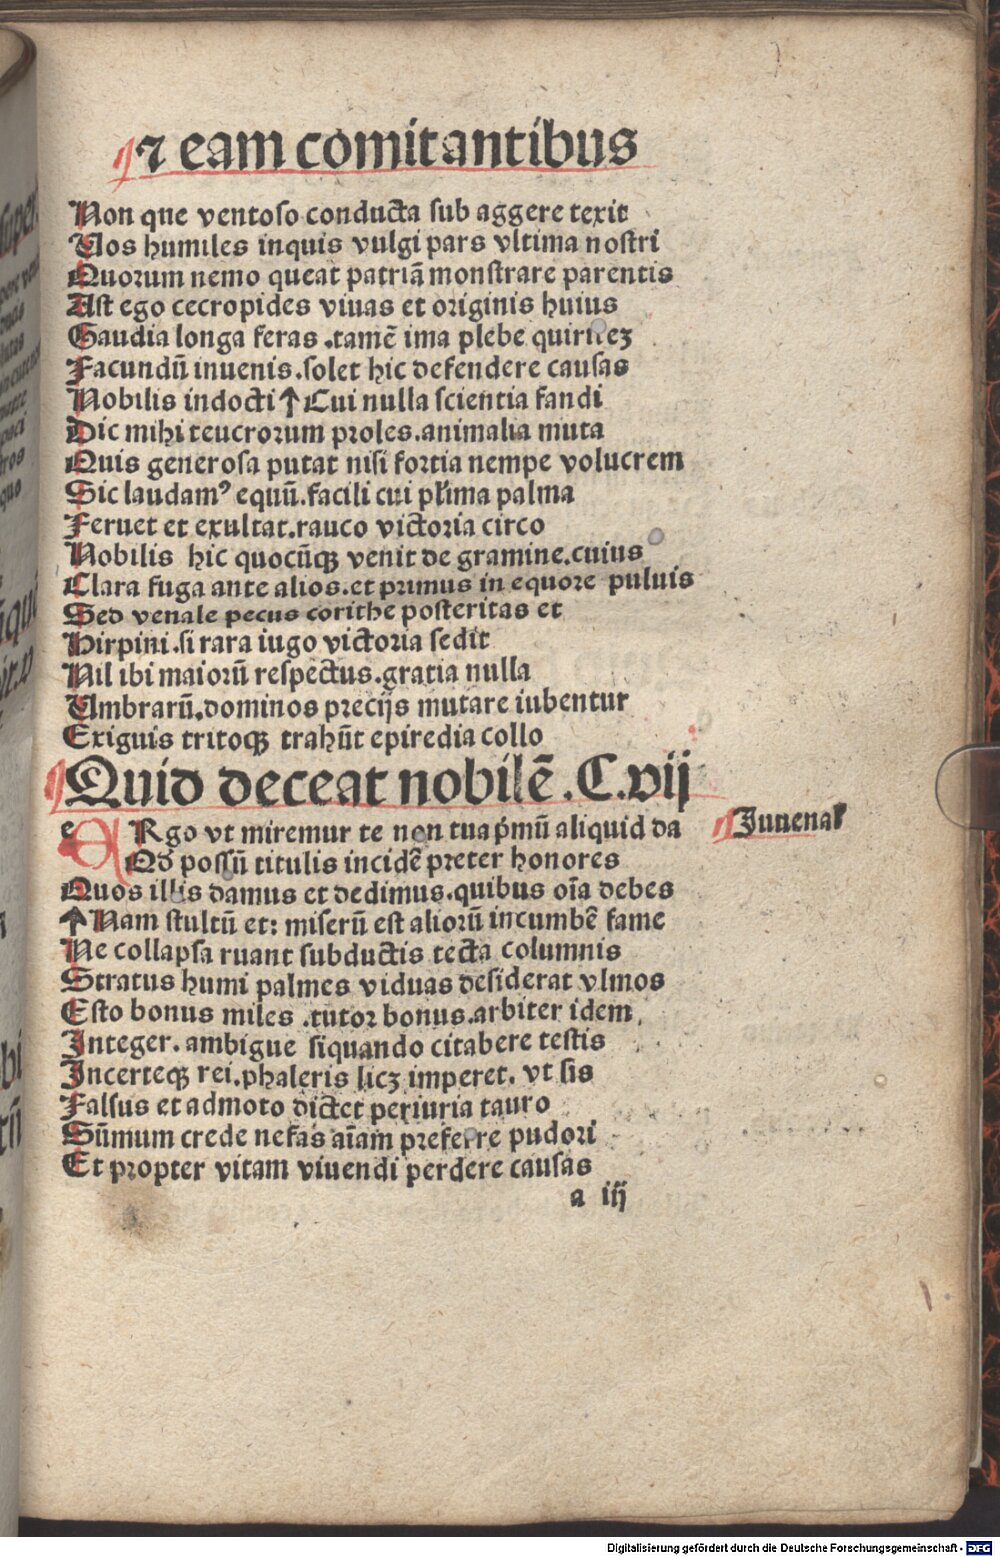 ⁊ eam comitantibus
Non que ventoso conducta sub aggere texit
Uos humiles inquis vulgi pars vltima nostri
Quorum nemo queat patriā monstrare parentis
Ast ego cecropides viuas et originis huius
Gaudia longa feras .tamē ima plebe quiriteꝫ
Facundū inuenis.solet hic defendere causas
Nobilis indocti ↑ Cui nulla scientia fandi
Dic mihi teucrorum proles.animalia muta
Quis generosa putat nisi fortia nempe volucrem
Sic laudamꝰ equū.facili cui plrima palma
Feruet et exultat.rauco victoria circo
Nobilis hic quocūqꝫ venit de gramine.cuius
Clara fuga ante alios.et primus in equore puluis
Sed venale pecus corithe posteritas et
Hirpini.si rara iugo victoria sedit
Nil ibi maiorū respectus.gratia nulla
Umbrarū.dominos precijs mutare iubentur
Exiguis tritoqꝫ trahūt epiredia collo
Quid deceat nobilē .C.vij
eRgo vt miremur te non tua pͥmū aliquid da
Qd possū titulis incidē preter honores
Quos illis damus et dedimus.quibus oīa debes
↑ Nam stultū et: miserū est aliorū incumbē fame
Ne collapsa ruant subductis tecta columnis
Stratus humi palmes viduas desiderat vlmos
Esto bonus miles .tutor bonus.arbiter idem
Integer. ambigue siquando citabere testis
Incerteqꝫ rei.phaleris licꝫ imperet. vt sis
Falsus et admoto dictet periuria tauro
Sūmum crede nefas aīam preferre pudori
Et propter vitam viuendi perdere causas
a iij
Juuenal
Digitalisierung gefördert durch die Deutsche Forschungsgemeinschaft - DFG